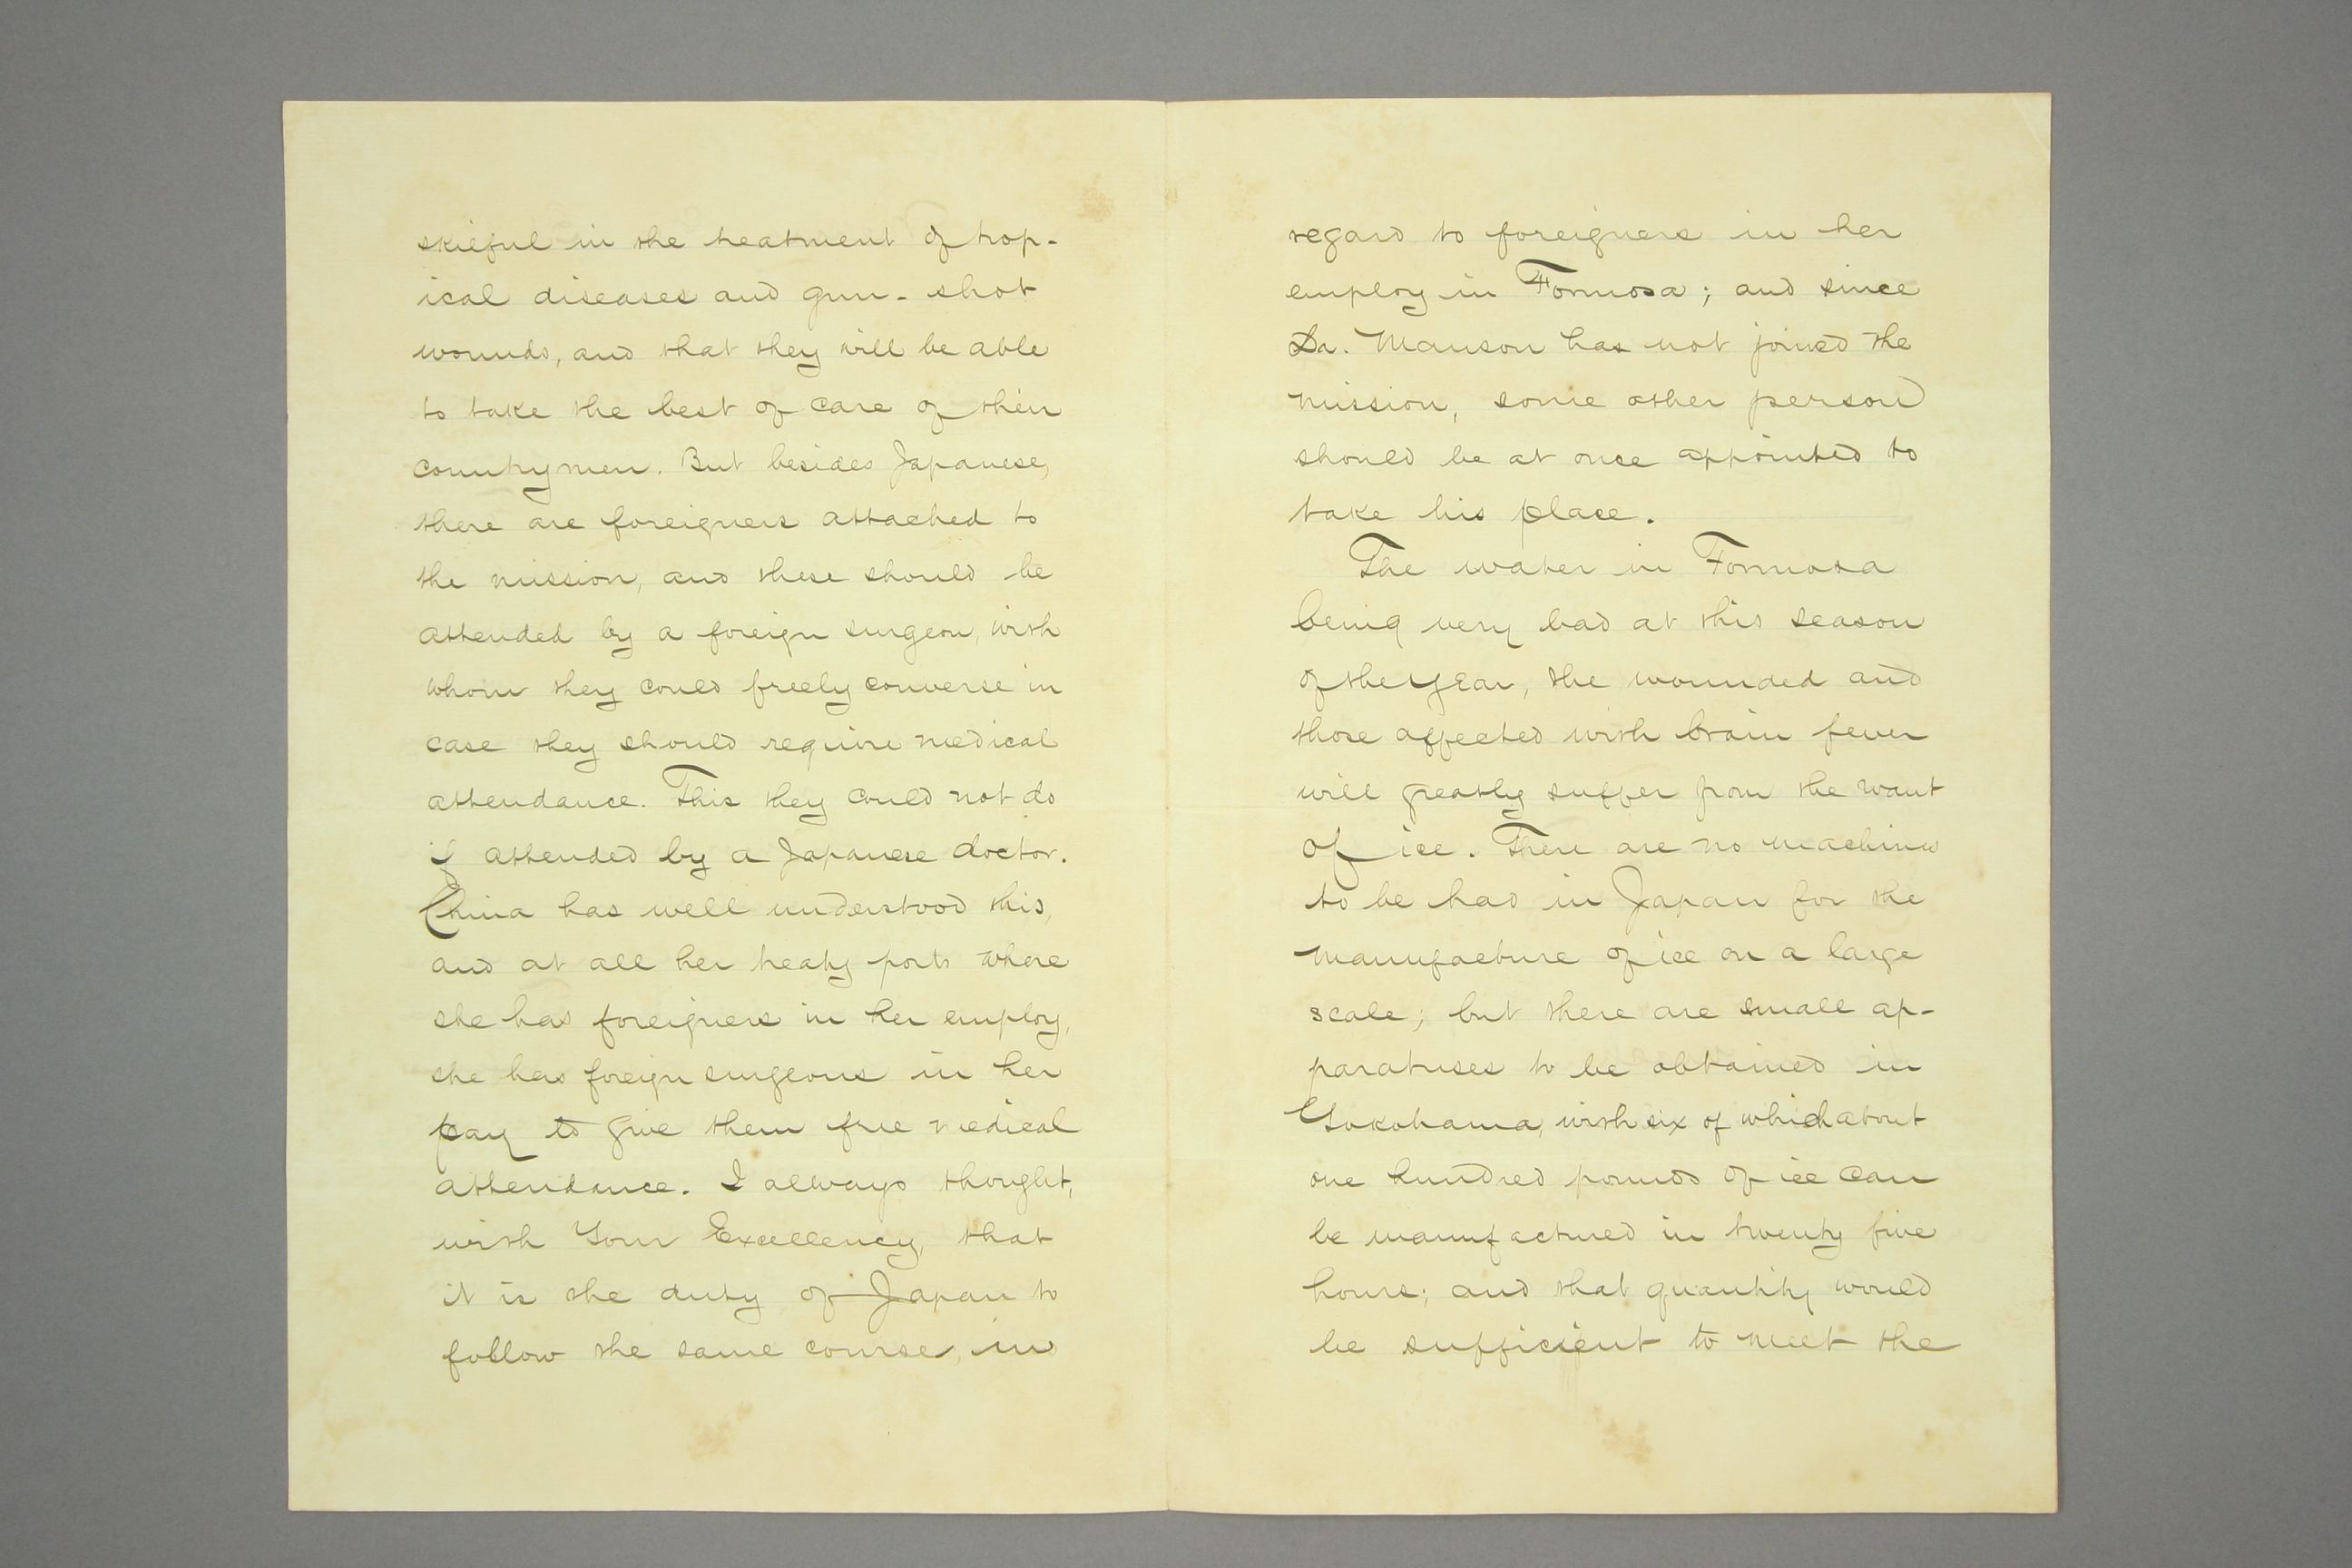 skilful in the treatment of trop-
ical diseases and gun-shot
wounds, and that they will be able
to take the best of care of their
countrymen. But besides Japanese,
there are foreigners attached to
the mission, and these should be
attended by a foreign surgeon, with
whom they could freely converse in
case they should require medical
attendance. This they could not do
if attended by a Japanese doctor.
China has well understood this,
and at all her treaty ports where
she has foreigners in her employ,
she has foreign surgeons in her
pay to give them free medical
attendance. I always thought,
with Your Excellency, that
it is the duty of Japan to
follow the same course, in
regard to foreigners in her
employ in Formosa; and since
Dr. Manson has not joined the
mission, some other person
should be at once appointed to
take his place.
The water in Formosa
being very bad at this season
of the year, the wounded and
those affected with brain fever
will greatly suffer from the want
of ice. There are no machines
to be had in Japan for the
manufacture of ice on a large
scale; but there are small ap-
paratuses to be obtained in
Yokohama, with six of which about
one hundred pounds of ice can
be manufactured in twenty five
hours; and that quantity would
be sufficient to meet the